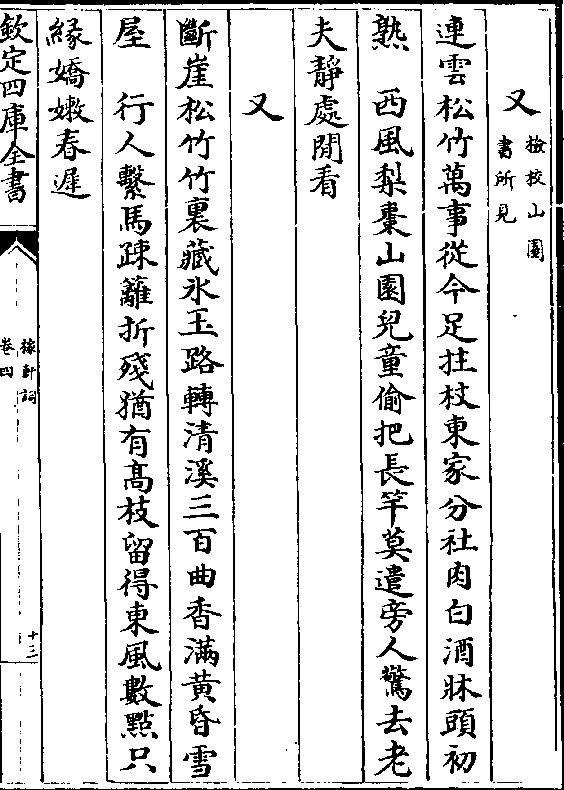 又 檢校山園
書所見
連雲松竹萬事從今足拄杖東家分社肉白酒牀頭初
熟 西風梨棗山園兒童偷把長竿莫遣旁人驚去老
夫靜處閒看
又
斷崖松竹竹裏藏氷玉路轉清溪三百曲香滿黃昏雪
屋 行人繫馬疎籬折殘猶有高枝留得東風數點只
緣嬌嫩春遲
欽定四庫全書
稼軒詞
卷四
十三